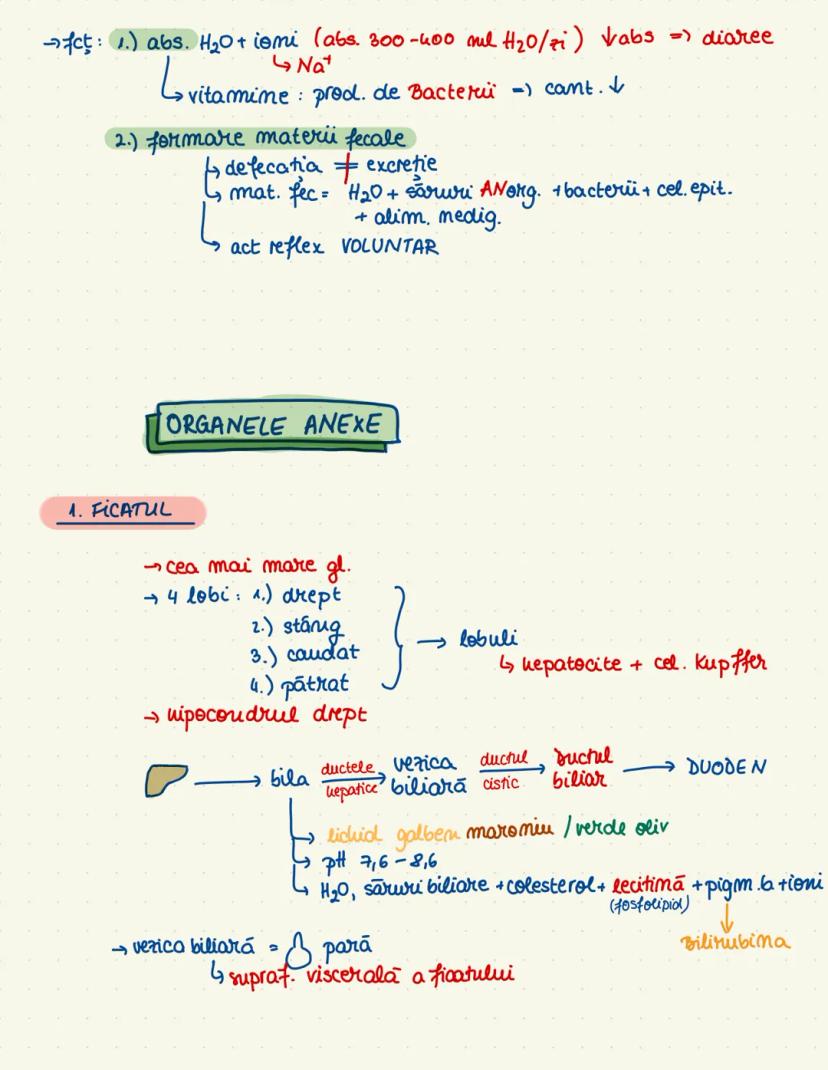 → fcț: 1.) abs. H₂O + ioni (abs. 300-400 ml H₂O/zi) ↓abs => diaree
↳ Na⁺
↳ vitamine : prod. de Bacterii => cant. ↓
2.) formare materii fecale
↳ defecația ≠ excreție
↳ mat. fec = H₂O + săruri ANorg. + bacterii + cel. epit.
+ alim. nedig.
↳ act reflex VOLUNTAR
ORGANELE ANEXE
1. FICATUL
→ cea mai mare gl.
→ 4 lobi : 1.) drept
2.) stâng
3.) caudat
4.) pătrat
→ lobuli
↳ hepatocite + cel. Kupffer
→ hipocondrul drept
→ bila ductele hepatice → vezica biliară ductul cistic → Ductul biliar → DUODEN
↳ lichid galben maroniu / verde oliv
↳ pH 7,6 - 8,6
↳ H₂O, săruri biliare + colesterol + lecitină + pigm. b + ioni
(fosfolipid)
↓
Bilirubina
→ vezica biliară = pară
↳ supraf. viscerală a ficatului